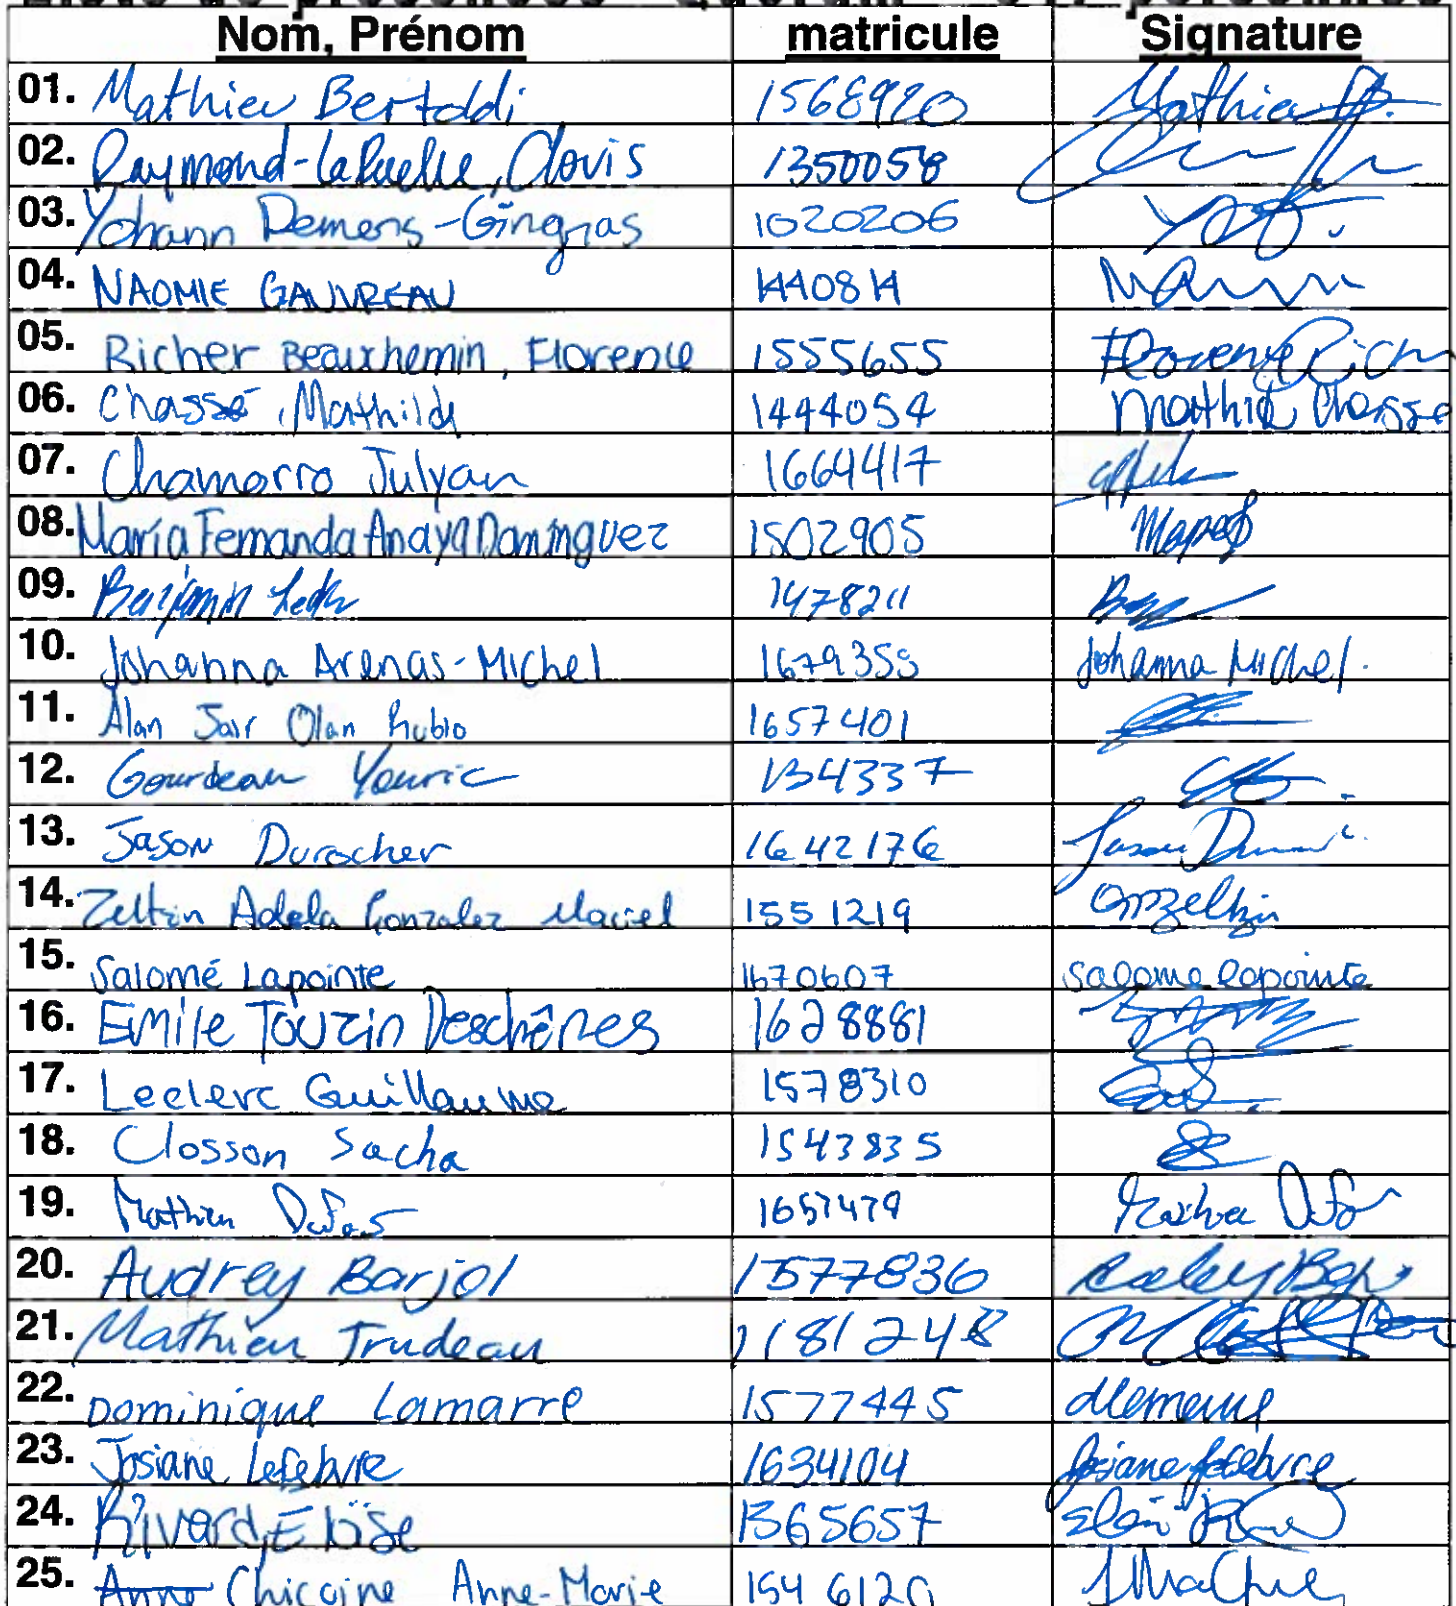 Nom, Prénom matricule Signature
01. Mathieu Bertoldi 1568920 Mathieu B.
02. Raymond-LaRuelle, Clovis 1350058
03. Yohann Demers-Gingras 1020206
04. NAOMIE GAUVREAU 1440814
05. Richer Beauchemin, Florence 1555655 Florence Rich
06. Chassé, Mathilde 1444054 Mathilde Chassé
07. Chamorro Julyan 1664417
08. María Fernanda Anaya Domínguez 1502905
09. Benjamin 1478211
10. Johanna Arenas-Michel 1679355 Johanna Michel.
11. Alan Jair Olan Rubio 1657401
12. Gourdeau Youric 1334337
13. Jason Durocher 1642176
14. Zeltzin Adela Gonzalez Maciel 1551219
15. Salomé Lapointe 1670607 Salomé Lapointe
16. Emile Touzin Deschênes 1628881
17. Leclerc Guillaume 1578310
18. Closson Sacha 1543835
19. Mathieu Dufour 1657479
20. Audrey Barjol 1577836
21. Mathieu Trudeau 1181248
22. Dominique Lamarre 1577445
23. Josiane Lefebvre 1634104 Josiane Lefebvre
24. Rivard, Eloïse 1365657
25. Anne Chicoine Anne-Marie 1546120